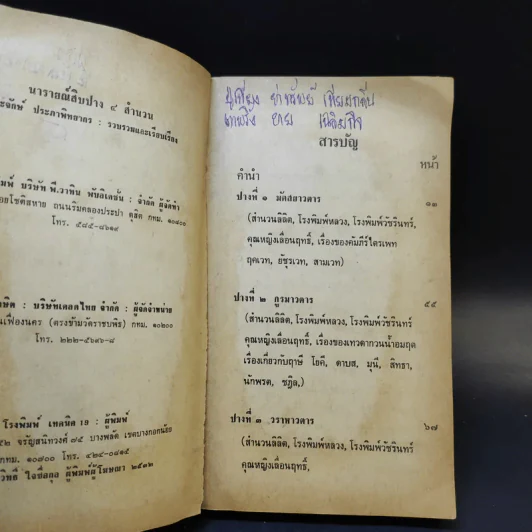 นารายณ์สิบปาง ๔ สำนวน
ประภาพิทยากร : รวบรวมและเรียบเรียง
บริษัท พี.วาทิน พับลิเคชั่น : จำกัด ผู้จัดทำ
ถนนริมคลองประปา ดุสิต กทม. ๑๐๘๐๐
โทร. ๕๘๕-๘๖๑๙
บริษัทเคล็ดไทย จำกัด : ผู้จัดจำหน่าย
เฟื่องนคร (ตรงข้ามวัดราชบพิธ) กทม. ๑๐๒๐๐
โทร. ๒๒๒-๕๖๙๖-๘
โรงพิมพ์ เทคนิค 19 : ผู้พิมพ์
จรัญสนิทวงศ์ ๗๕ บางพลัด เขตบางกอกน้อย
กทม. ๑๐๗๐๐ โทร. ๔๒๔-๐๘๑๕
ผู้พิมพ์ผู้โฆษณา ๒๕๓๒
สารบัญ
หน้า
คำนำ
ปางที่ ๑ มัตสยาวตาร ๑๓
(สำนวนลิลิต, โรงพิมพ์หลวง, โรงพิมพ์วัชรินทร์,
คุณหญิงเลื่อนฤทธิ์, เรื่องของคัมภีร์ไตรเพท
ฤคเวท, ยัชุรเวท, สามเวท)
ปางที่ ๒ กูรมาวตาร ๕๕
(สำนวนลิลิต, โรงพิมพ์หลวง, โรงพิมพ์วัชรินทร์
คุณหญิงเลื่อนฤทธิ์, เรื่องของเทวดากวนน้ำอมฤต
เรื่องเกี่ยวกับฤาษี โยคี, ดาบส, มุนี, สิทธา,
นักพรต, ชฎิล,)
ปางที่ ๓ วราหาวตาร ๖๗
(สำนวนลิลิต, โรงพิมพ์หลวง, โรงพิมพ์วัชรินทร์
คุณหญิงเลื่อนฤทธิ์,